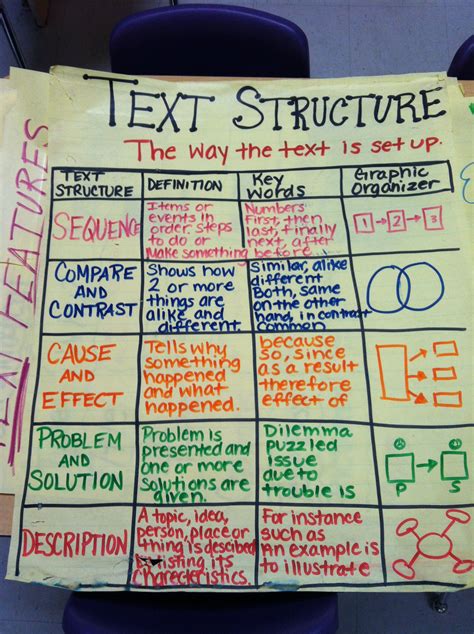 TEXT STRUCTURE
The way the text is set up.
TEXT FEATURES
TEXT
STRUCTURE
DEFINITION
Key
Words
Graphic
Organizer
SEQUENCE
Items or
events in
order steps
to do or
Make something
Numbers
First, then
last, finally
next, after
before
1 2 3
COMPARE
AND
CONTRAST
Shows how
2 or more
things are
alike and
different
Similar, alike
different
Both, same
on the other
hand, in contrast
common
CAUSE
AND
EFFECT
Tells why
something
happened
and what
happened.
because
so, since
as a result
therefore
effect of
PROBLEM
AND
SOLUTION
Problem is
presented and
one or more
solutions are
given.
Dilemma
puzzled
issue
due to
trouble is
P S
DESCRIPTION
A topic, idea,
person, place or
thing is descibed
listing its
characteristics.
For instance
such as
An example is
to illustrate